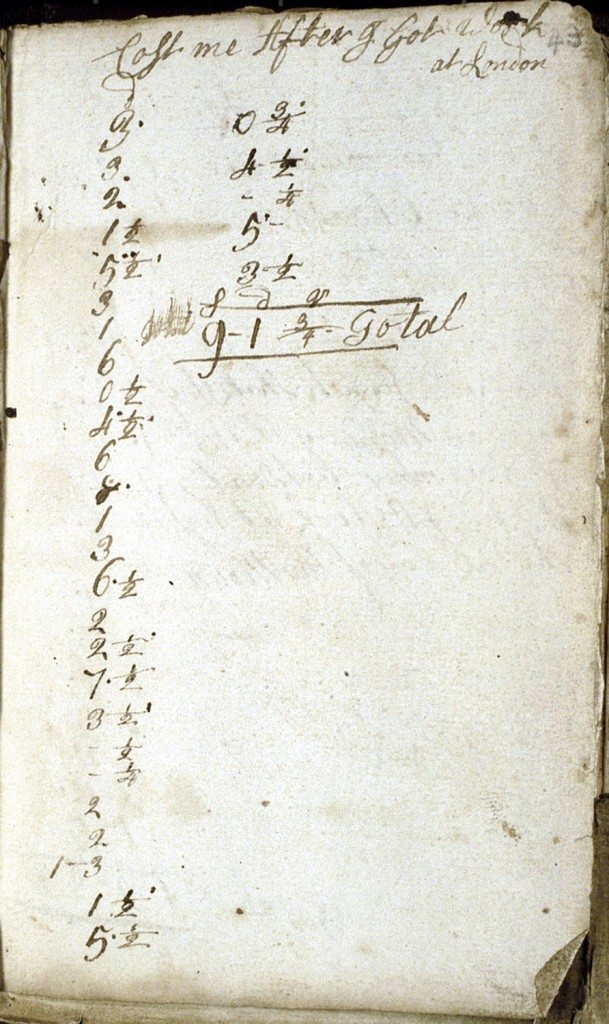 Cost me After J Got Work
43
at London
d
3.
3.
2.
1 1/2
5 1/2
3
1
6
0 1/2
4 1/2
6
1
3
6 1/2
2
2 1/2
7 1/2
3 1/2
- 1/2
- 1/4
2
2
1-3
1 1/2
5 1/2
0 3/4
4 1/2
- 1/4
5 -
3 1/2
s d q
9-1 3/4 Total